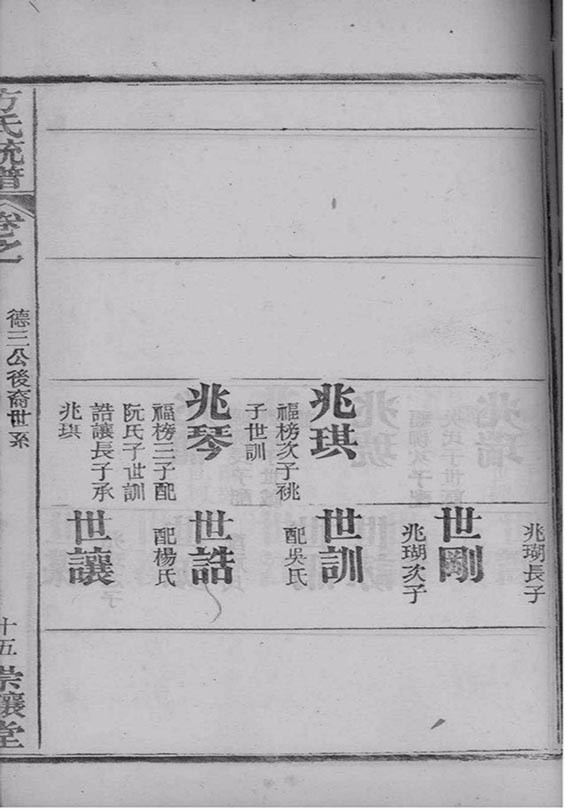 兆琪
福榜次子祧
子世訓
兆琴
福榜三子配
阮氏子世訓
誥讓長子承
兆琪
兆瑚長子
世剛
兆瑚次子
世訓
配吳氏
世誥
配楊氏
世讓
方氏統譜
卷之一
德三公後裔世系
十五
崇讓堂